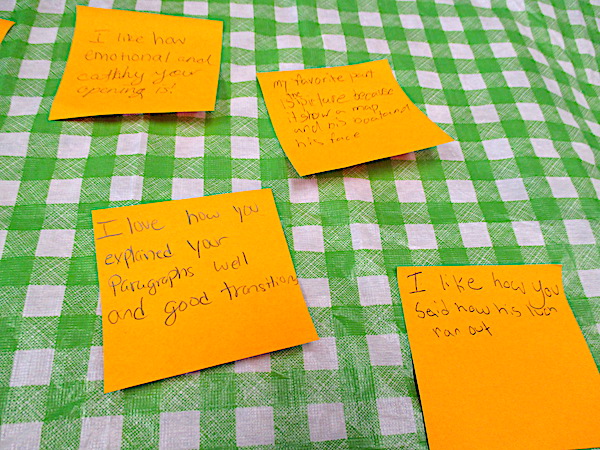 I like how
emotional and
catchy your
opening is!
my favorite part
the
is picture because
it show a map
and his boat and
his face
I love how you
explained your
Paragraphs well
and good transitions
I like how you
Said how his luck
ran out